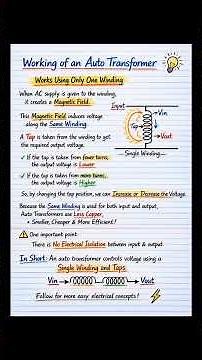 Working of an Auto Transformer
Works Using Only One Winding
When AC supply is given to the winding,
it creates a Magnetic Field.
This Magnetic Field induces voltage
along the Same Winding
A Tap is taken from the winding to get
the required output voltage.
✓ If the tap is taken from fewer turns,
the output voltage is Lower
✓ If the tap is taken from more turns,
the output voltage is Higher
Input
Vin
Tap
Vout
Single Winding...
So, by changing the tap position, we can Increase or Decrease the Voltage.
Because the Same Winding is used for both input and output,
Auto Transformers use Less Copper,
• Smaller, Cheaper & More Efficient!
⚠ One important point:
There is No Electrical Isolation between input & output.
In Short: An auto transformer controls voltage using a
Single Winding and Taps.
Vin
Vout
Follow for more easy electrical concepts!